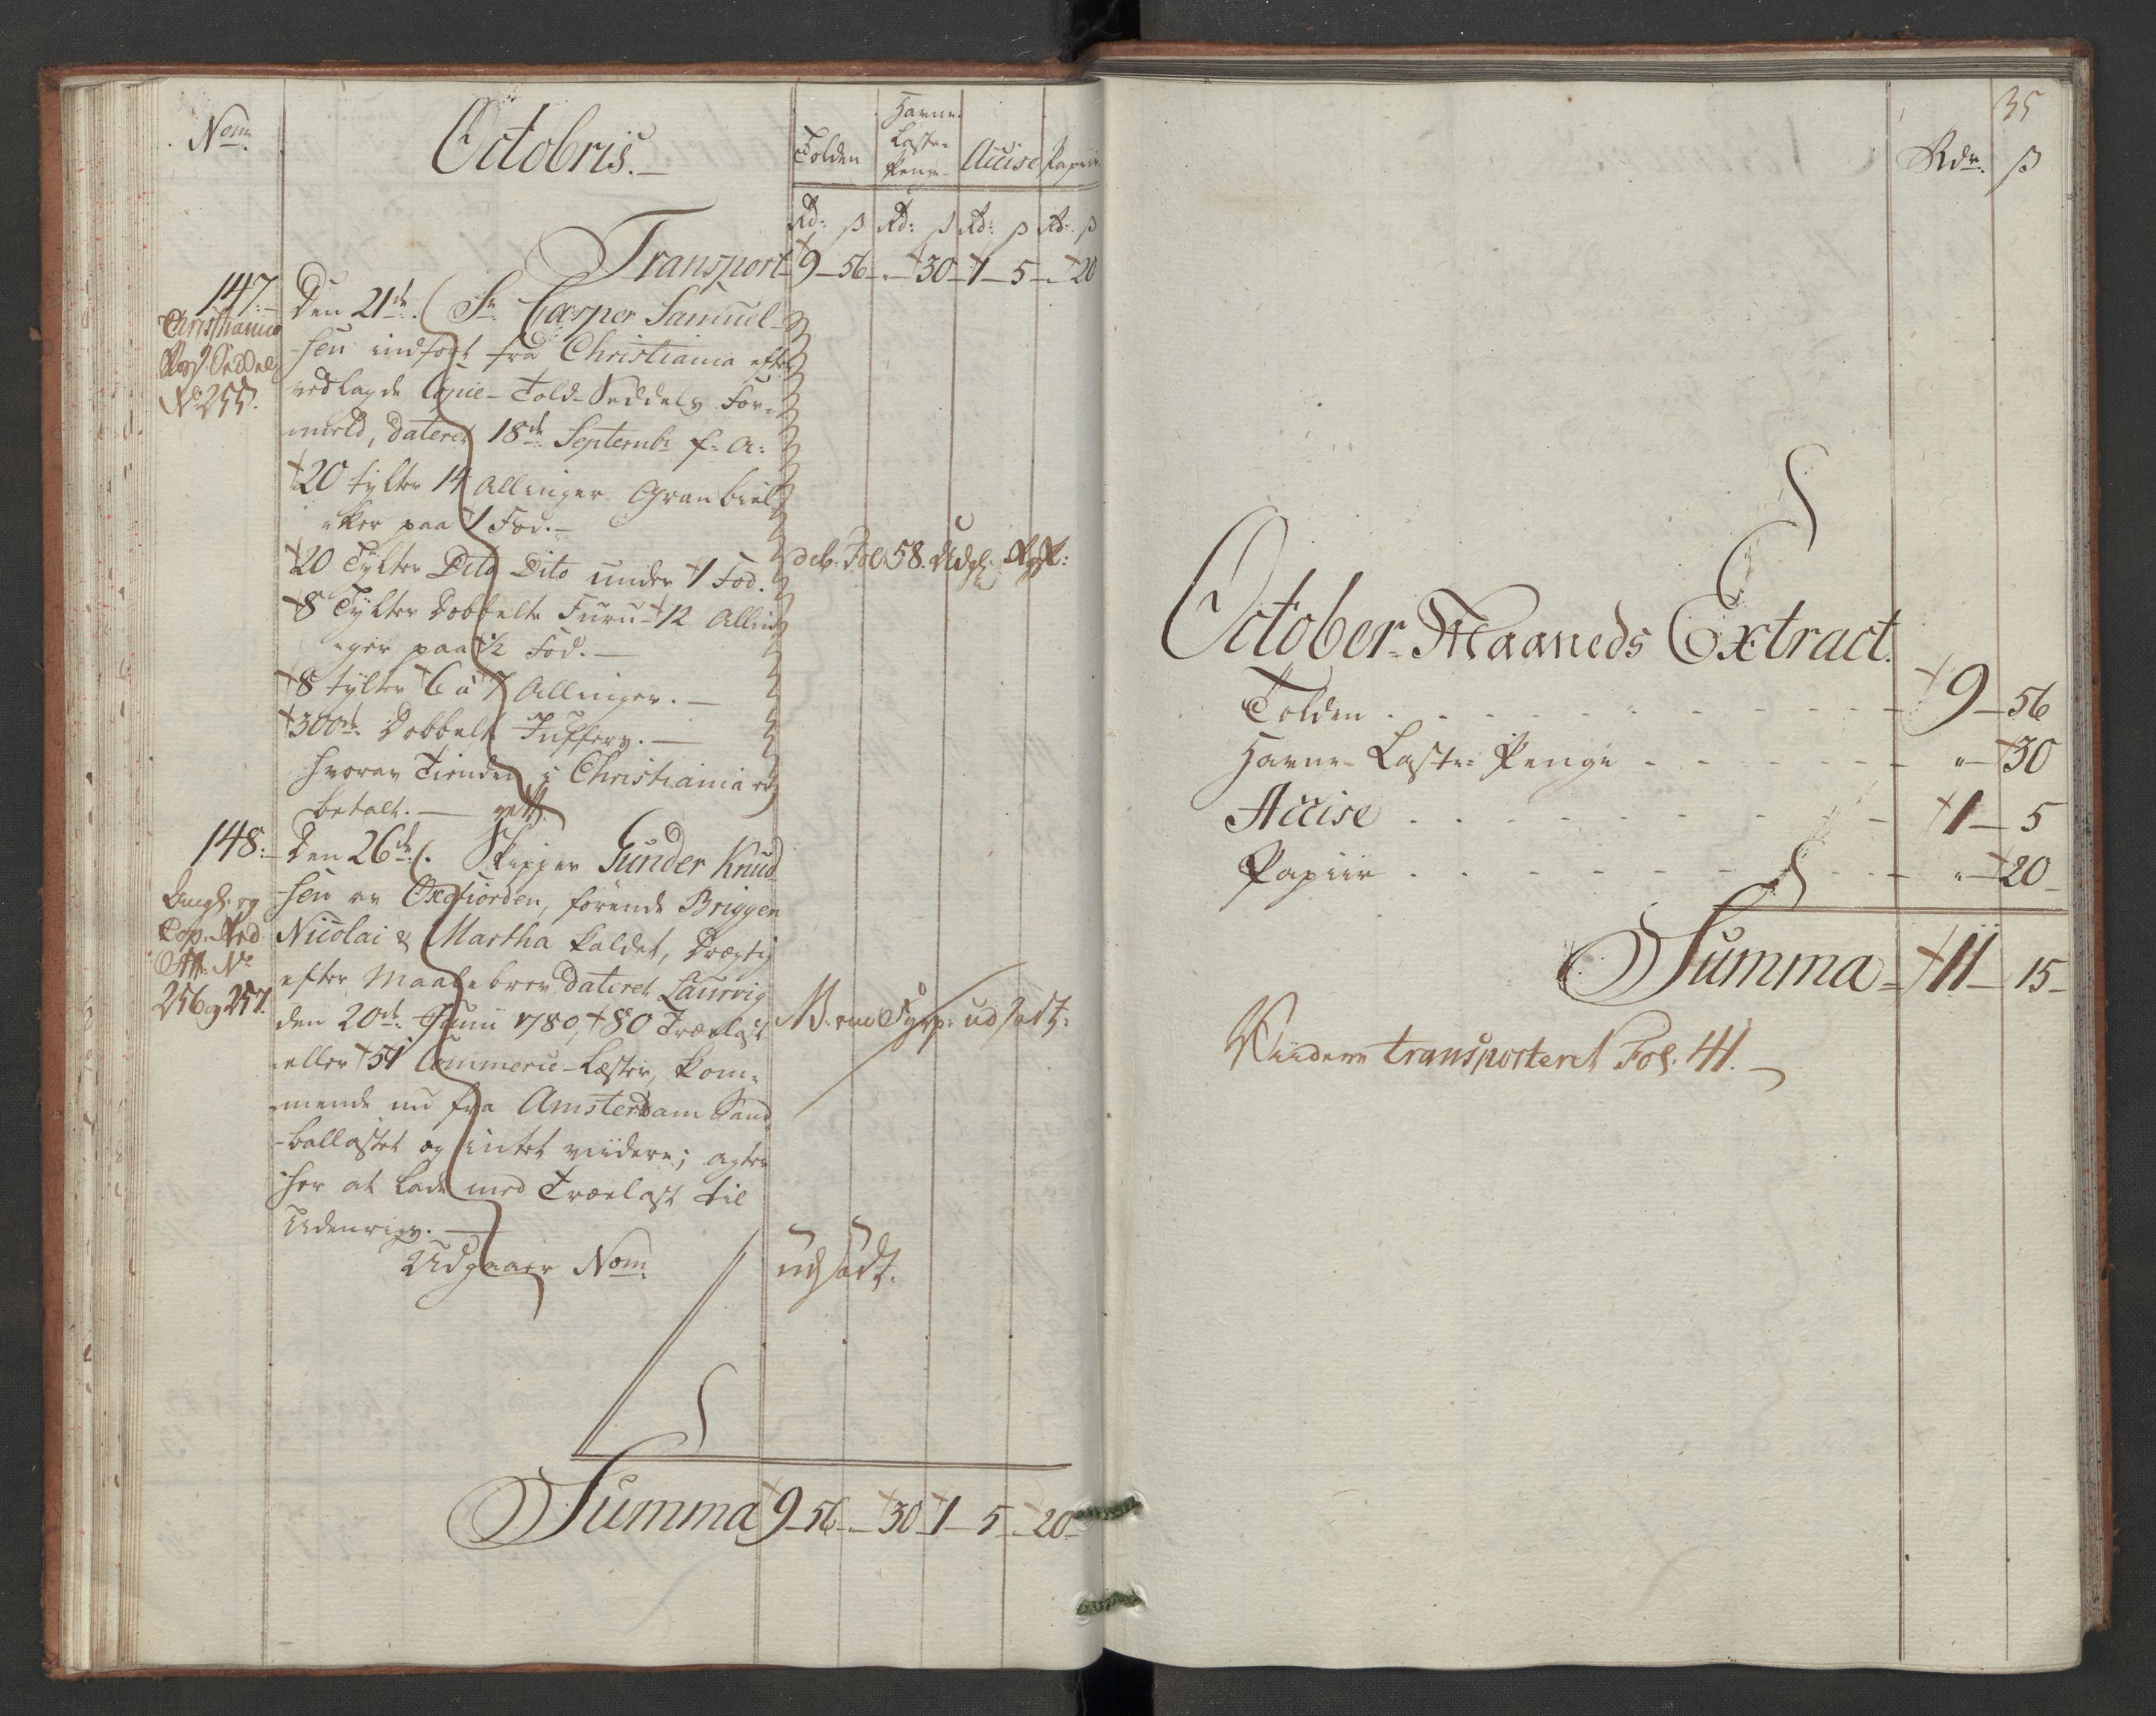 Nom:
Octobris.
Tolden
Havne-
Laste-
Penge
Accise
Papiir
Rd: ß Rd: ß Rd: ß Rd: ß
Transport 9 - 56 - " - 30 - 1 - 5 - " - 20
147.
Christiania
Seddel
No 255.
Den 21de: Sr Casper Samuel-
sen indført fra Christiania efter
vedlagde Copie-Told-Seddels For-
meld, dateret 18de Septembr f: a:
20 tylter 14 Allinger Gran biel-
ker paa 1 Fod.
20 Tylter Dito Dito under 1 Fod.
8 Tylter Dobbelte Furu 12 Allin-
ger paa 1/2 Fod.
8 tylter 6 a 7 Allinger.
300de Dobbelt Juffers.
hvorav Tienden i Christiania er
betalt.
deb: Fol 58. Udg:
148.
Den 26de: Skipper Gunder Knud-
sen av Oxefiorden, førende Briggen
Nicolai & Martha kaldet, drægtig
efter Maalebrev dateret Laurvig
den 20de Junii 1780, 80 Trælast
eller 54 Commerce-Læster, kom-
mende nu fra Amsterdam Sand
ballastet og intet viidere; agter
her at lade med Trælast til
Udenrigs.
og
No
256 og 257.
Udgaaer Nom:
udsadt.
Summa 9 - 56 - " - 30 - 1 - 5 - " - 20
35
Rdr. ß
October Maaneds Extract.
Tolden 9 - 56
Havne-Laste-Penge " - 30
Accise 1 - 5
Papiir " - 20
Summa 11 - 15
Viidere transporteret Fol. 41.